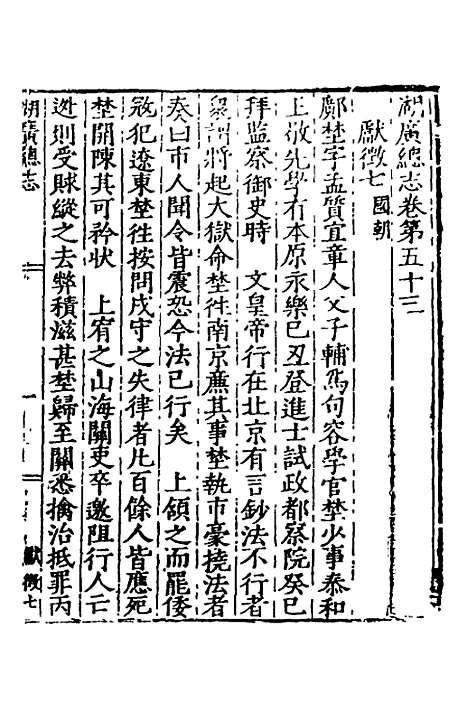 湖廣總志卷第五十三
獻徵七 國朝
鄺埜字孟質宜章人父子輔爲句容學官埜少事泰和
上彼先學有本原永樂己丑登進士試政都察院癸巳
拜監察御史時 文皇帝行在北京有言鈔法不行者
衆謂將起大獄命埜往南京廉其事埜執市豪撓法者
奏曰市人聞令皆震恐今法已行矣 上領之而罷倭
寇犯遼東埜徃按問戍守之失律者凡百餘人皆應死
埜開陳其可矜狀 上宥之山海關吏卒邀阻行人亡
迯則受賕縱之去弊積滋甚埜歸至關悉擒治抵罪丙
胡廣總志
獻徵七